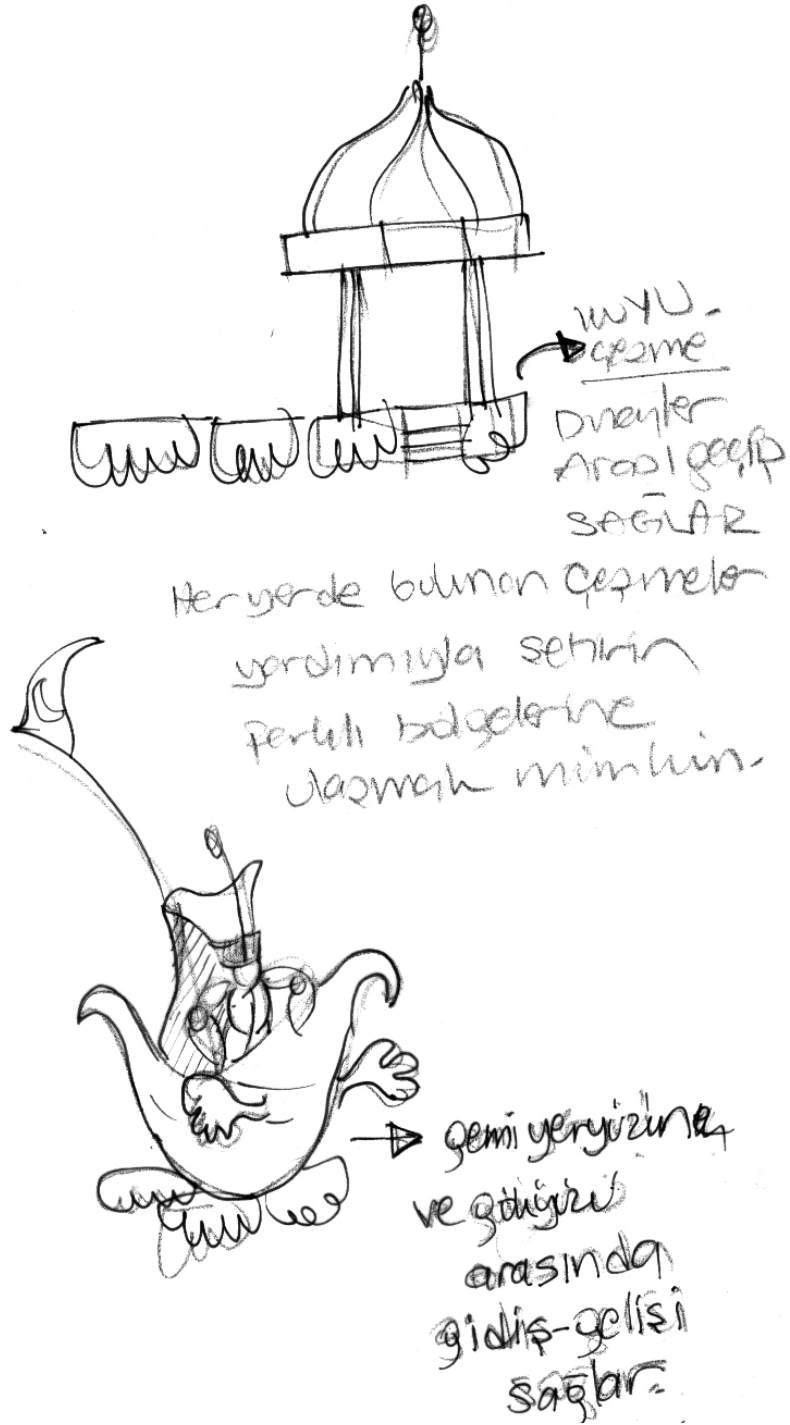 KUYU-
çeşme
Arası geçiş
SAĞLAR
Her yerde bulunan çeşmeler
yardımıyla şehrin
farklı bölgelerine
ulaşmak mümkün.
gemi yeryüzüne
ve gökyüzü
arasında
gidiş-gelişi
sağlar.